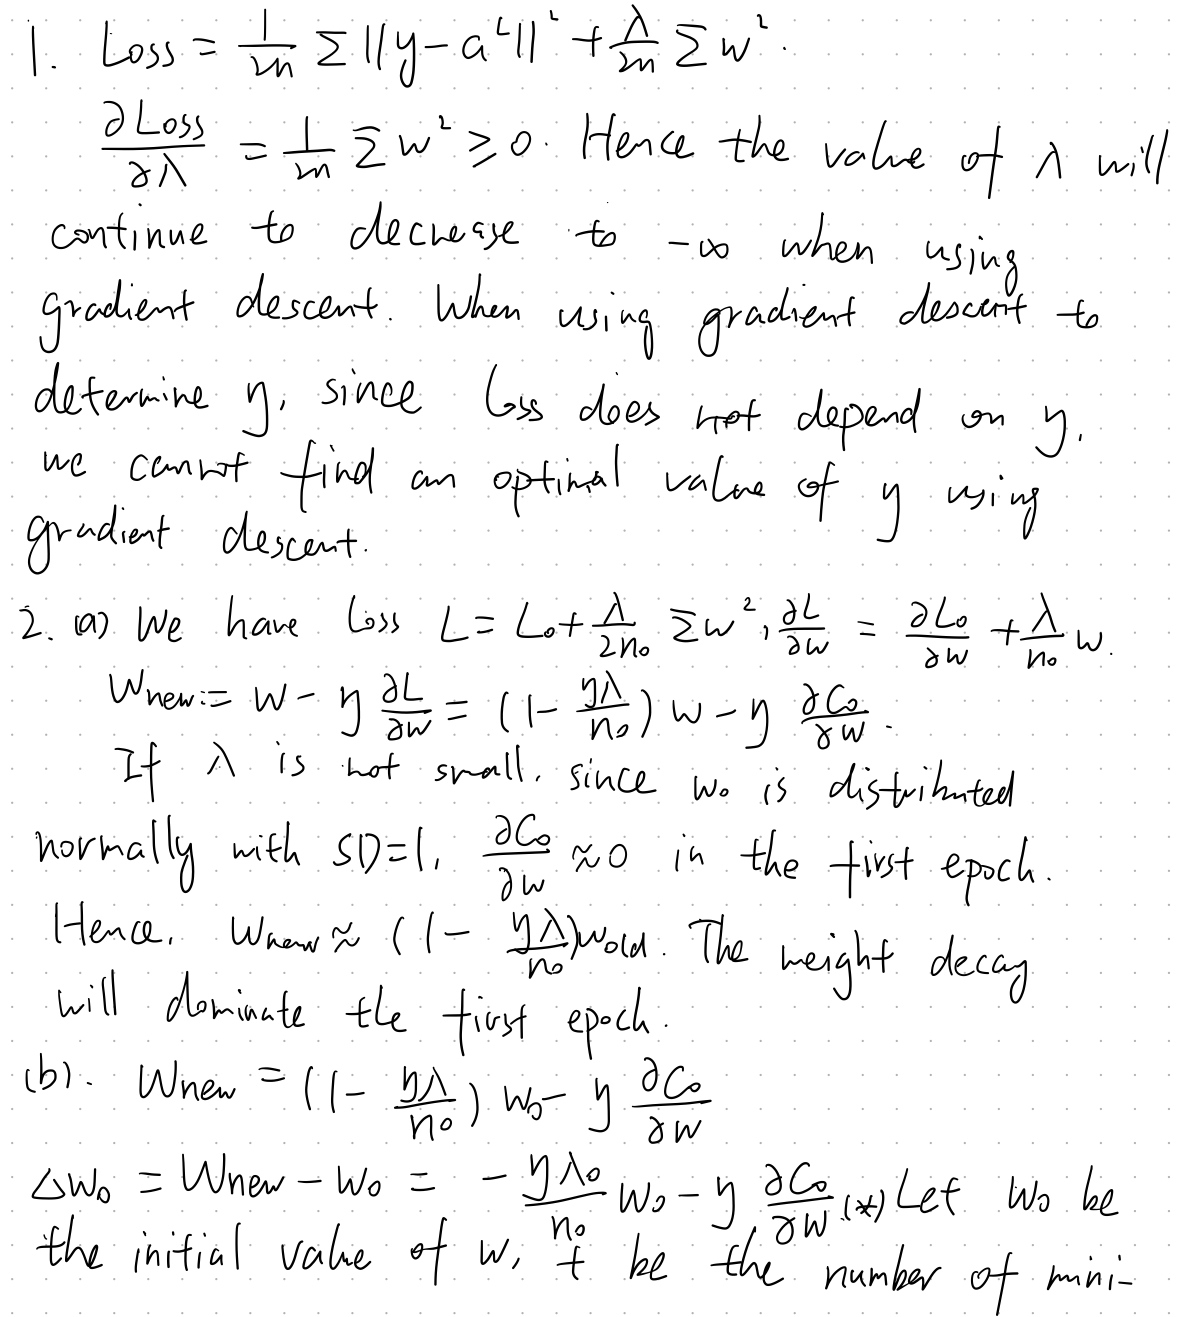 1. Loss = 1/2n Σ ||y - a^L||² + λ/2n Σ w².
∂Loss/∂λ = 1/2n Σ w² ≥ 0. Hence the value of λ will
continue to decrease to -∞ when using
gradient descent. When using gradient descent to
determine η, since Loss does not depend on η,
we cannot find an optimal value of η using
gradient descent.
2. (a) We have Loss L = L₀ + λ/2n₀ Σw², ∂L/∂w = ∂L₀/∂w + λ/n₀ w.
Wnew := w - η ∂L/∂w = (1 - ηλ/n₀) w - η ∂C₀/∂w.
If λ is not small, since w₀ is distributed
normally with SD=1, ∂C₀/∂w ≈ 0 in the first epoch.
Hence, Wnew ≈ (1 - ηλ/n₀) Wold. The weight decay
will dominate the first epoch.
(b). Wnew = (1 - ηλ/n₀) w₀ - η ∂C₀/∂w
Δw₀ = Wnew - W₀ = - ηλ₀/n₀ W₀ - η ∂C₀/∂w. (*) Let W₀ be
the initial value of w, t be the number of mini-